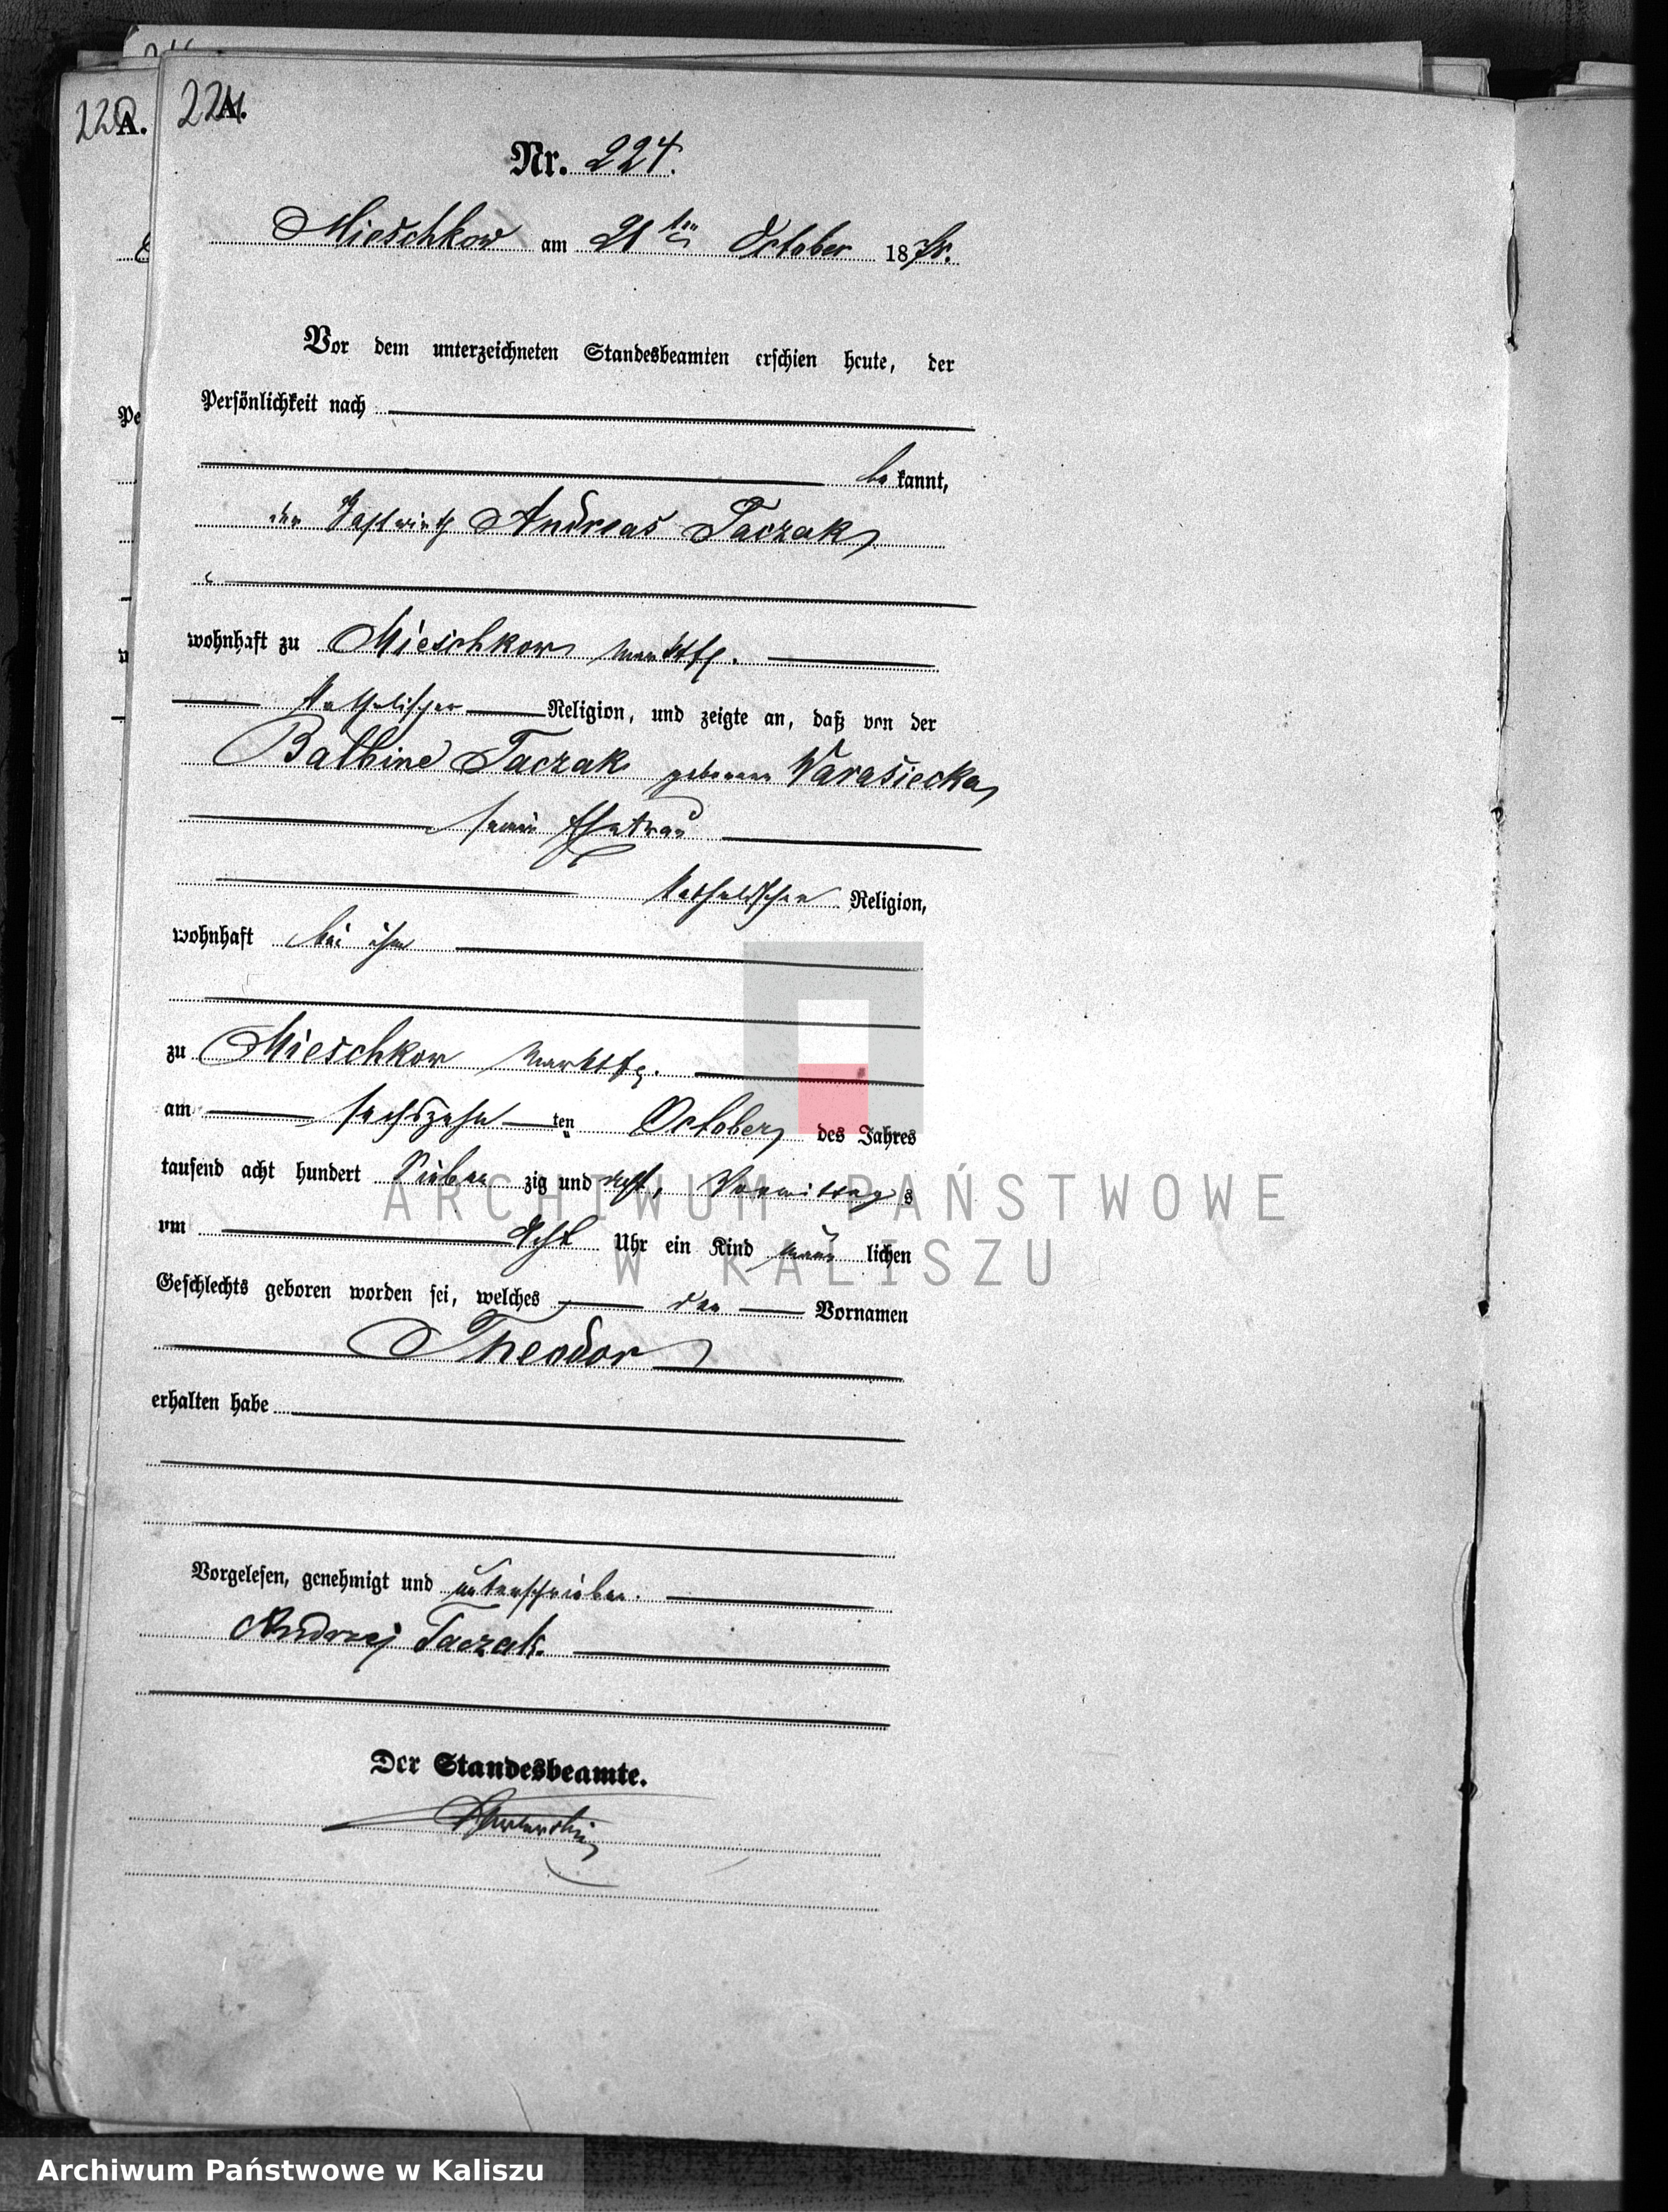 220 A.
224 A.
Nr. 224.
Mieschkow am 21ten October 1878.
Vor dem unterzeichneten Standesbeamten erschien heute, der
Persönlichkeit nach
be kannt,
der Gastwirth Andreas Taczak
wohnhaft zu Mieschkow
katholischer Religion, und zeigte an, daß von der
Balbine Taczak geborene Warasiecka
seine Ehefrau
katholischer Religion,
wohnhaft bei ihm
zu Mieschkow
am sechszehn ten October des Jahres
tausend acht hundert sieben zig und acht, Vormittag s
um acht Uhr ein Kind männ lichen
Geschlechts geboren worden sei, welches den Vornamen
Theodor
erhalten habe
Vorgelesen, genehmigt und unterschrieben.
Andrzej Taczak.
Der Standesbeamte.
ARCHIWUM PAŃSTWOWE
W KALISZU
Archiwum Państwowe w Kaliszu